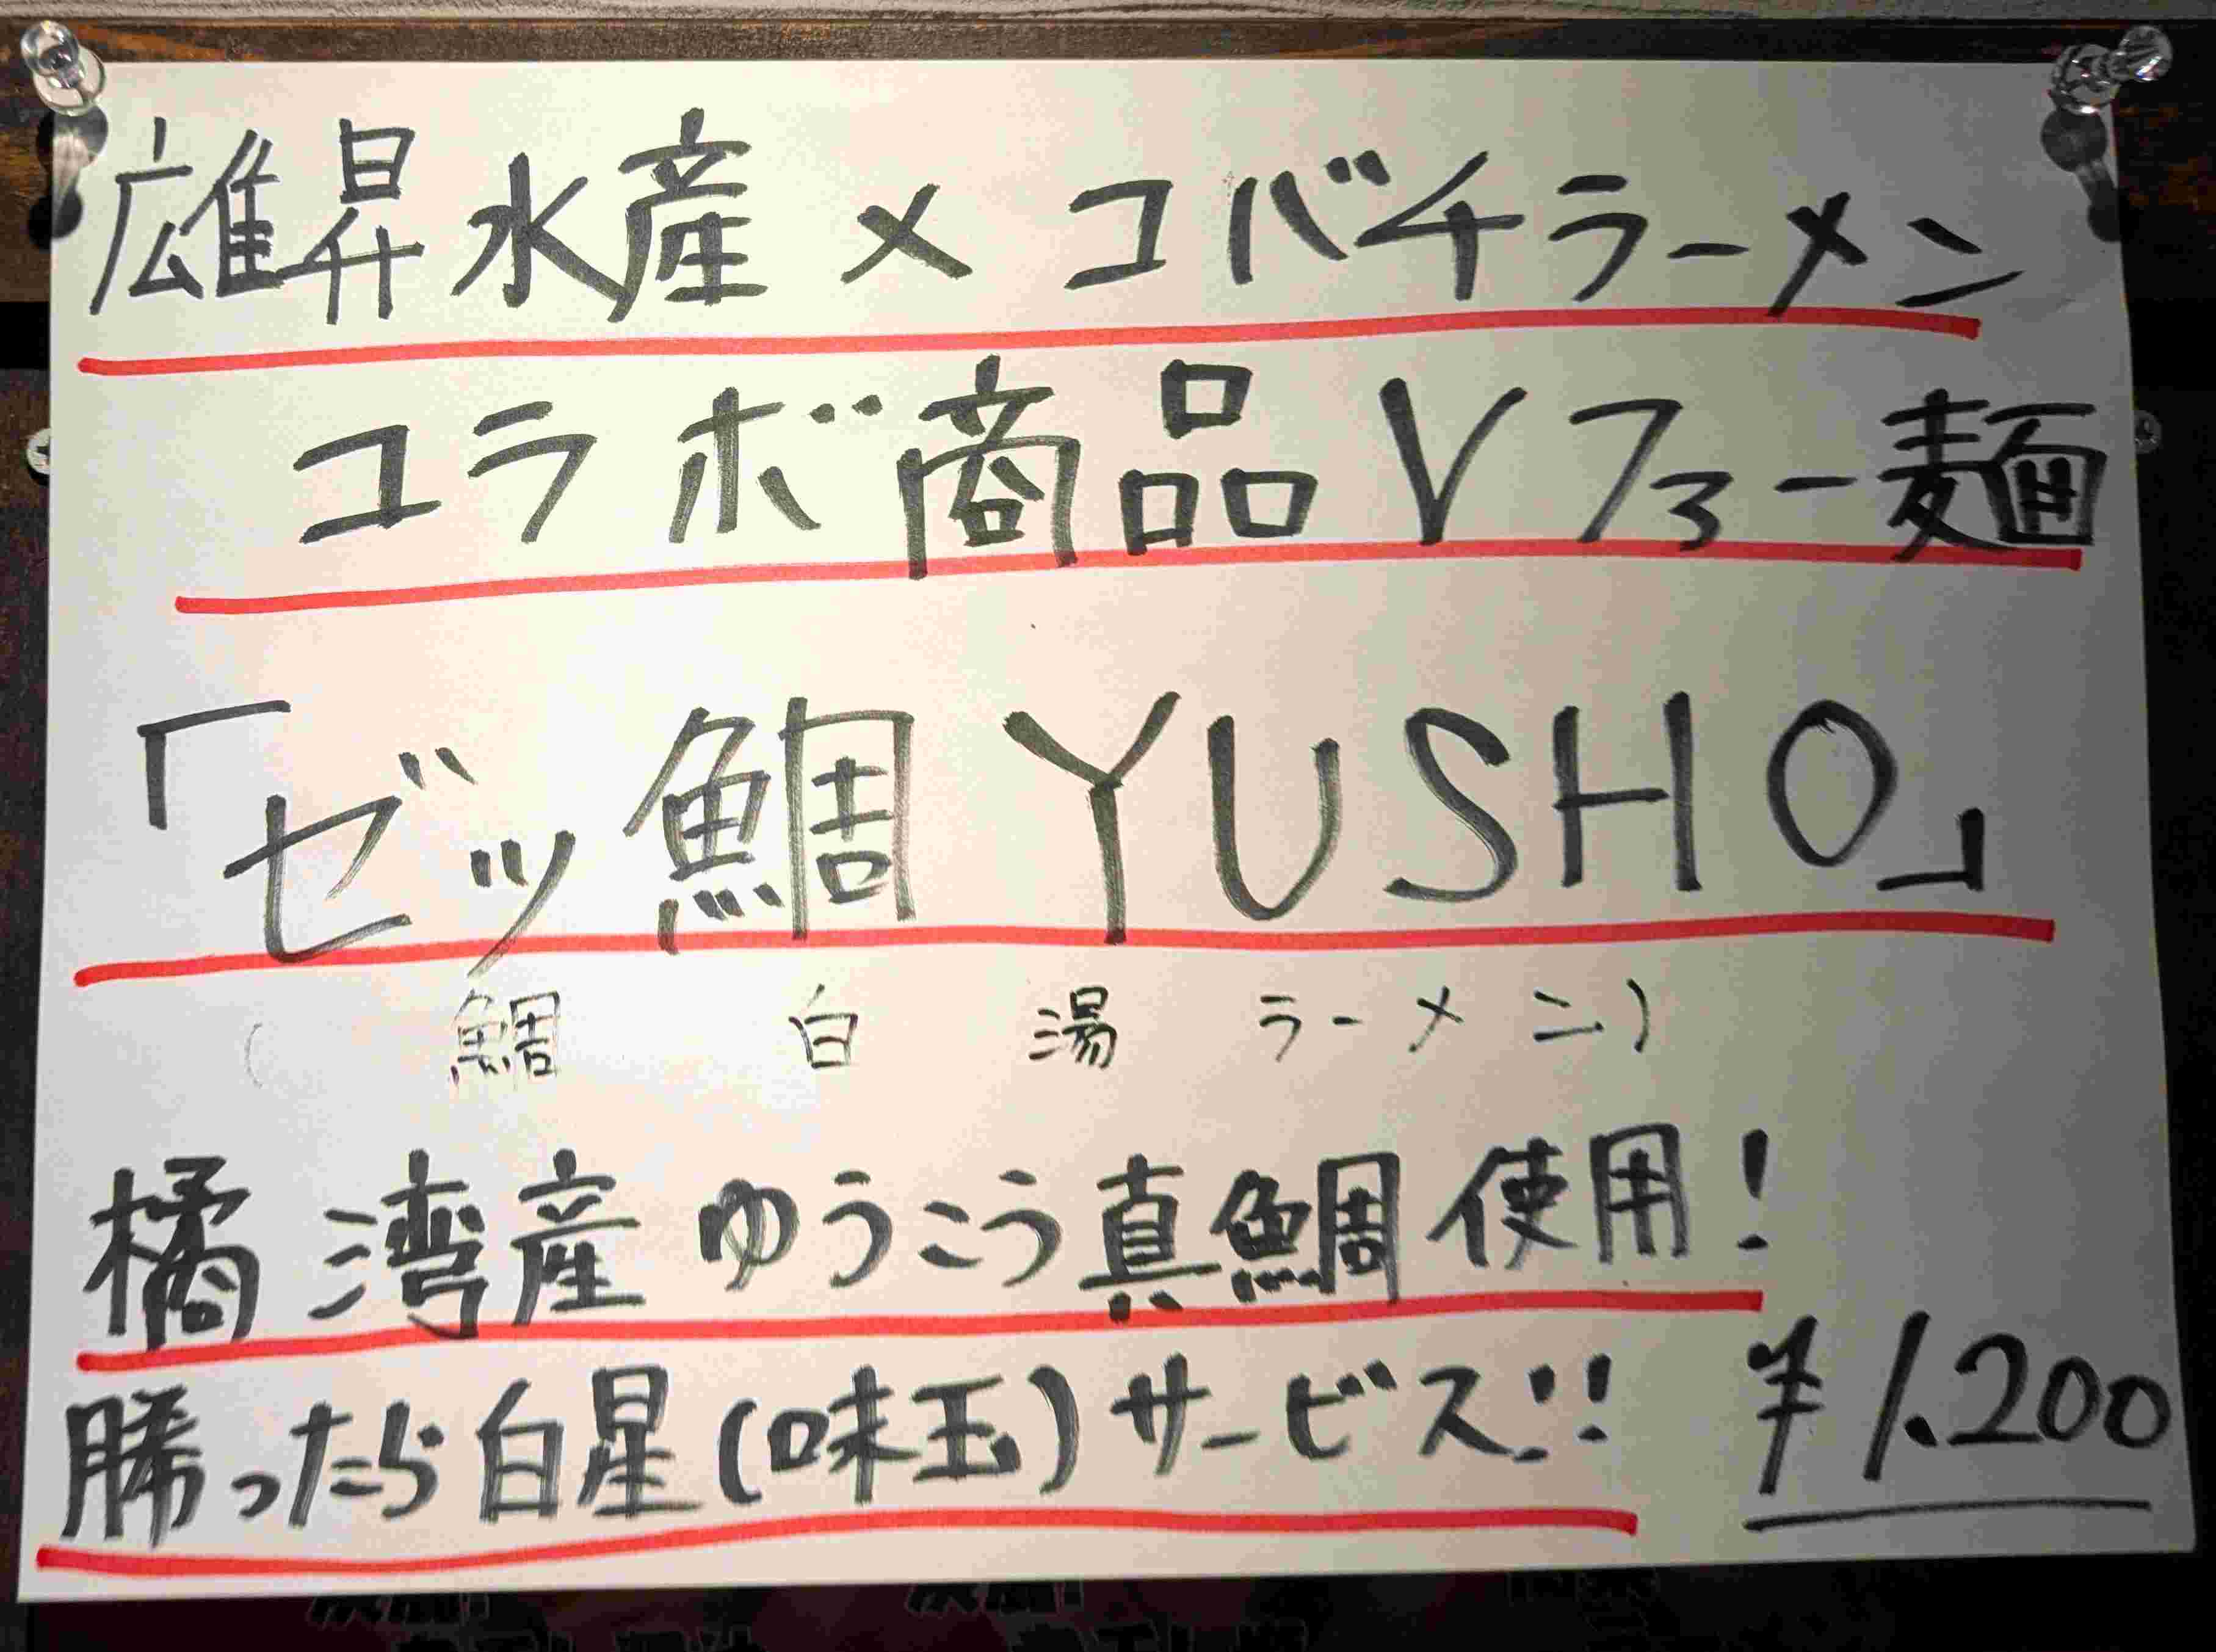 広雄昇水産×コバチラーメン
コラボ商品Vファー麺
「ゼッ鯛YUSHO」
(鯛白湯ラーメン)
橘湾産ゆうこう真鯛使用!
勝ったら白星(味玉)サービス!!
¥1.200